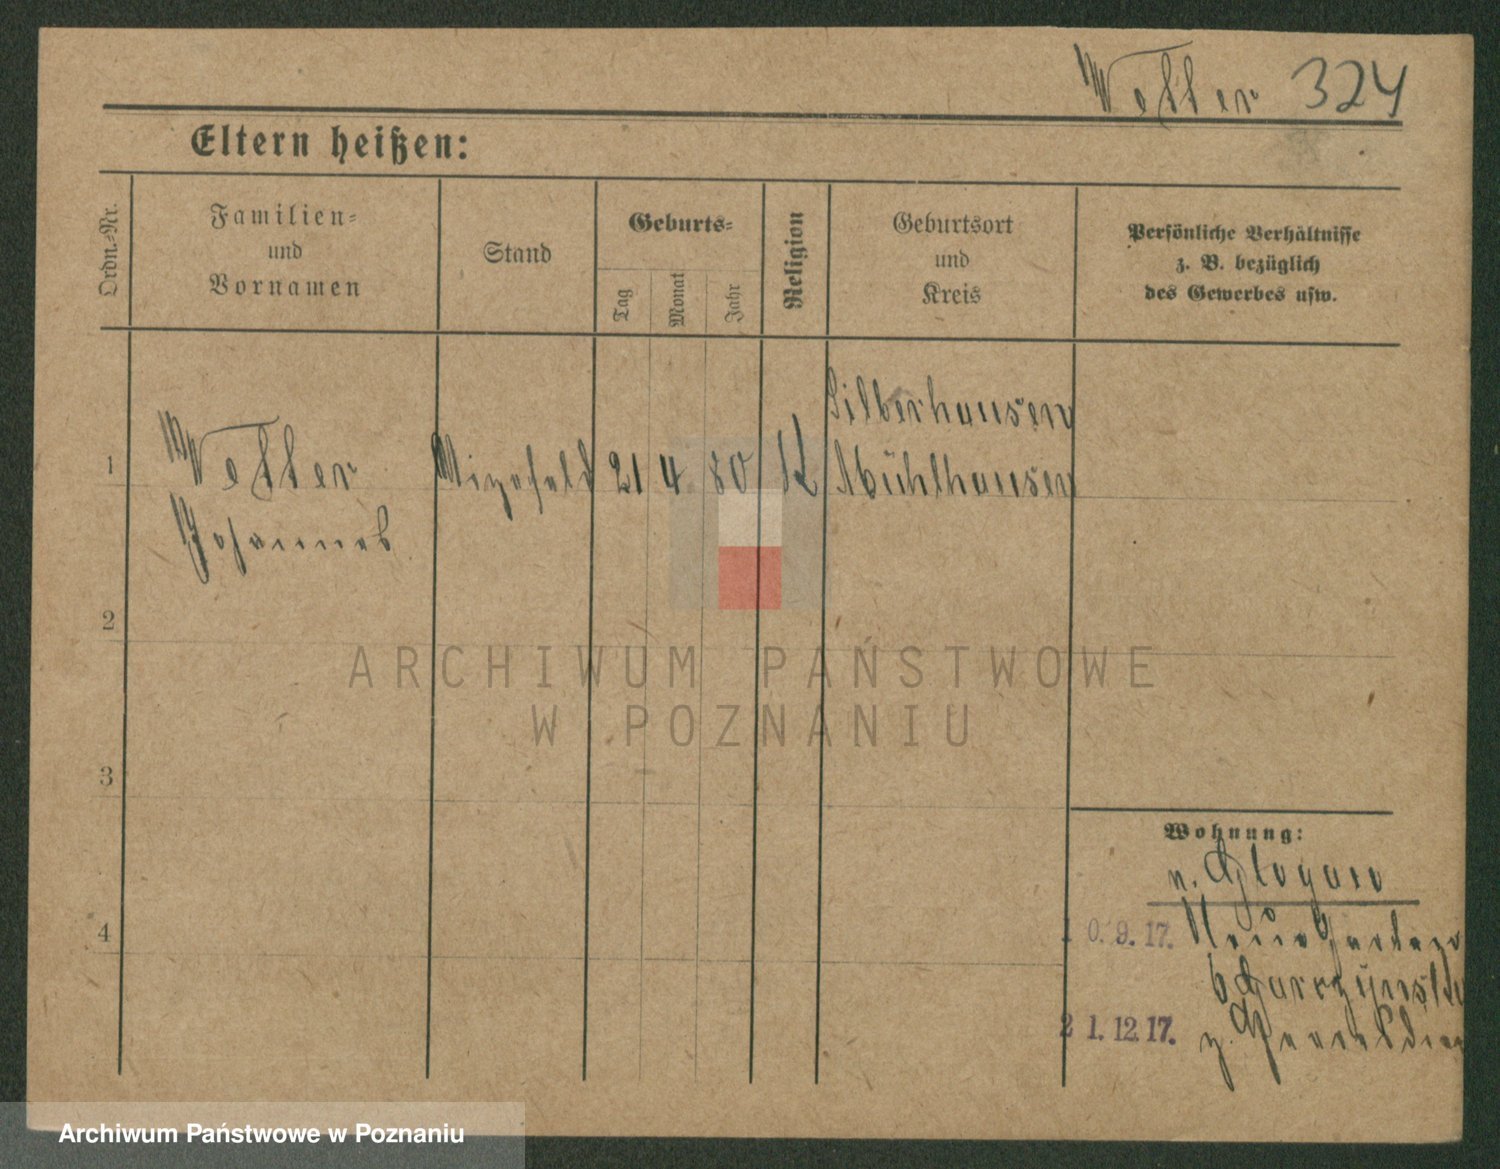 Vetter 324
Eltern heißen:
Ordn.-Nr.
Familien-
und
Vornamen
Stand
Geburts-
Tag
Monat
Jahr
Religion
Geburtsort
und
Kreis
Persönliche Verhältnisse
z. B. bezüglich
des Gewerbes usw.
1
Vetter
Johannes
Vizefeld
21 4 80 K
Silberhausen
Mühlhausen
2
3
4
Wohnung:
n. Glogau
10. 9. 17.
21. 12. 17.
ARCHIWUM PAŃSTWOWE
W POZNANIU
Archiwum Państwowe w Poznaniu